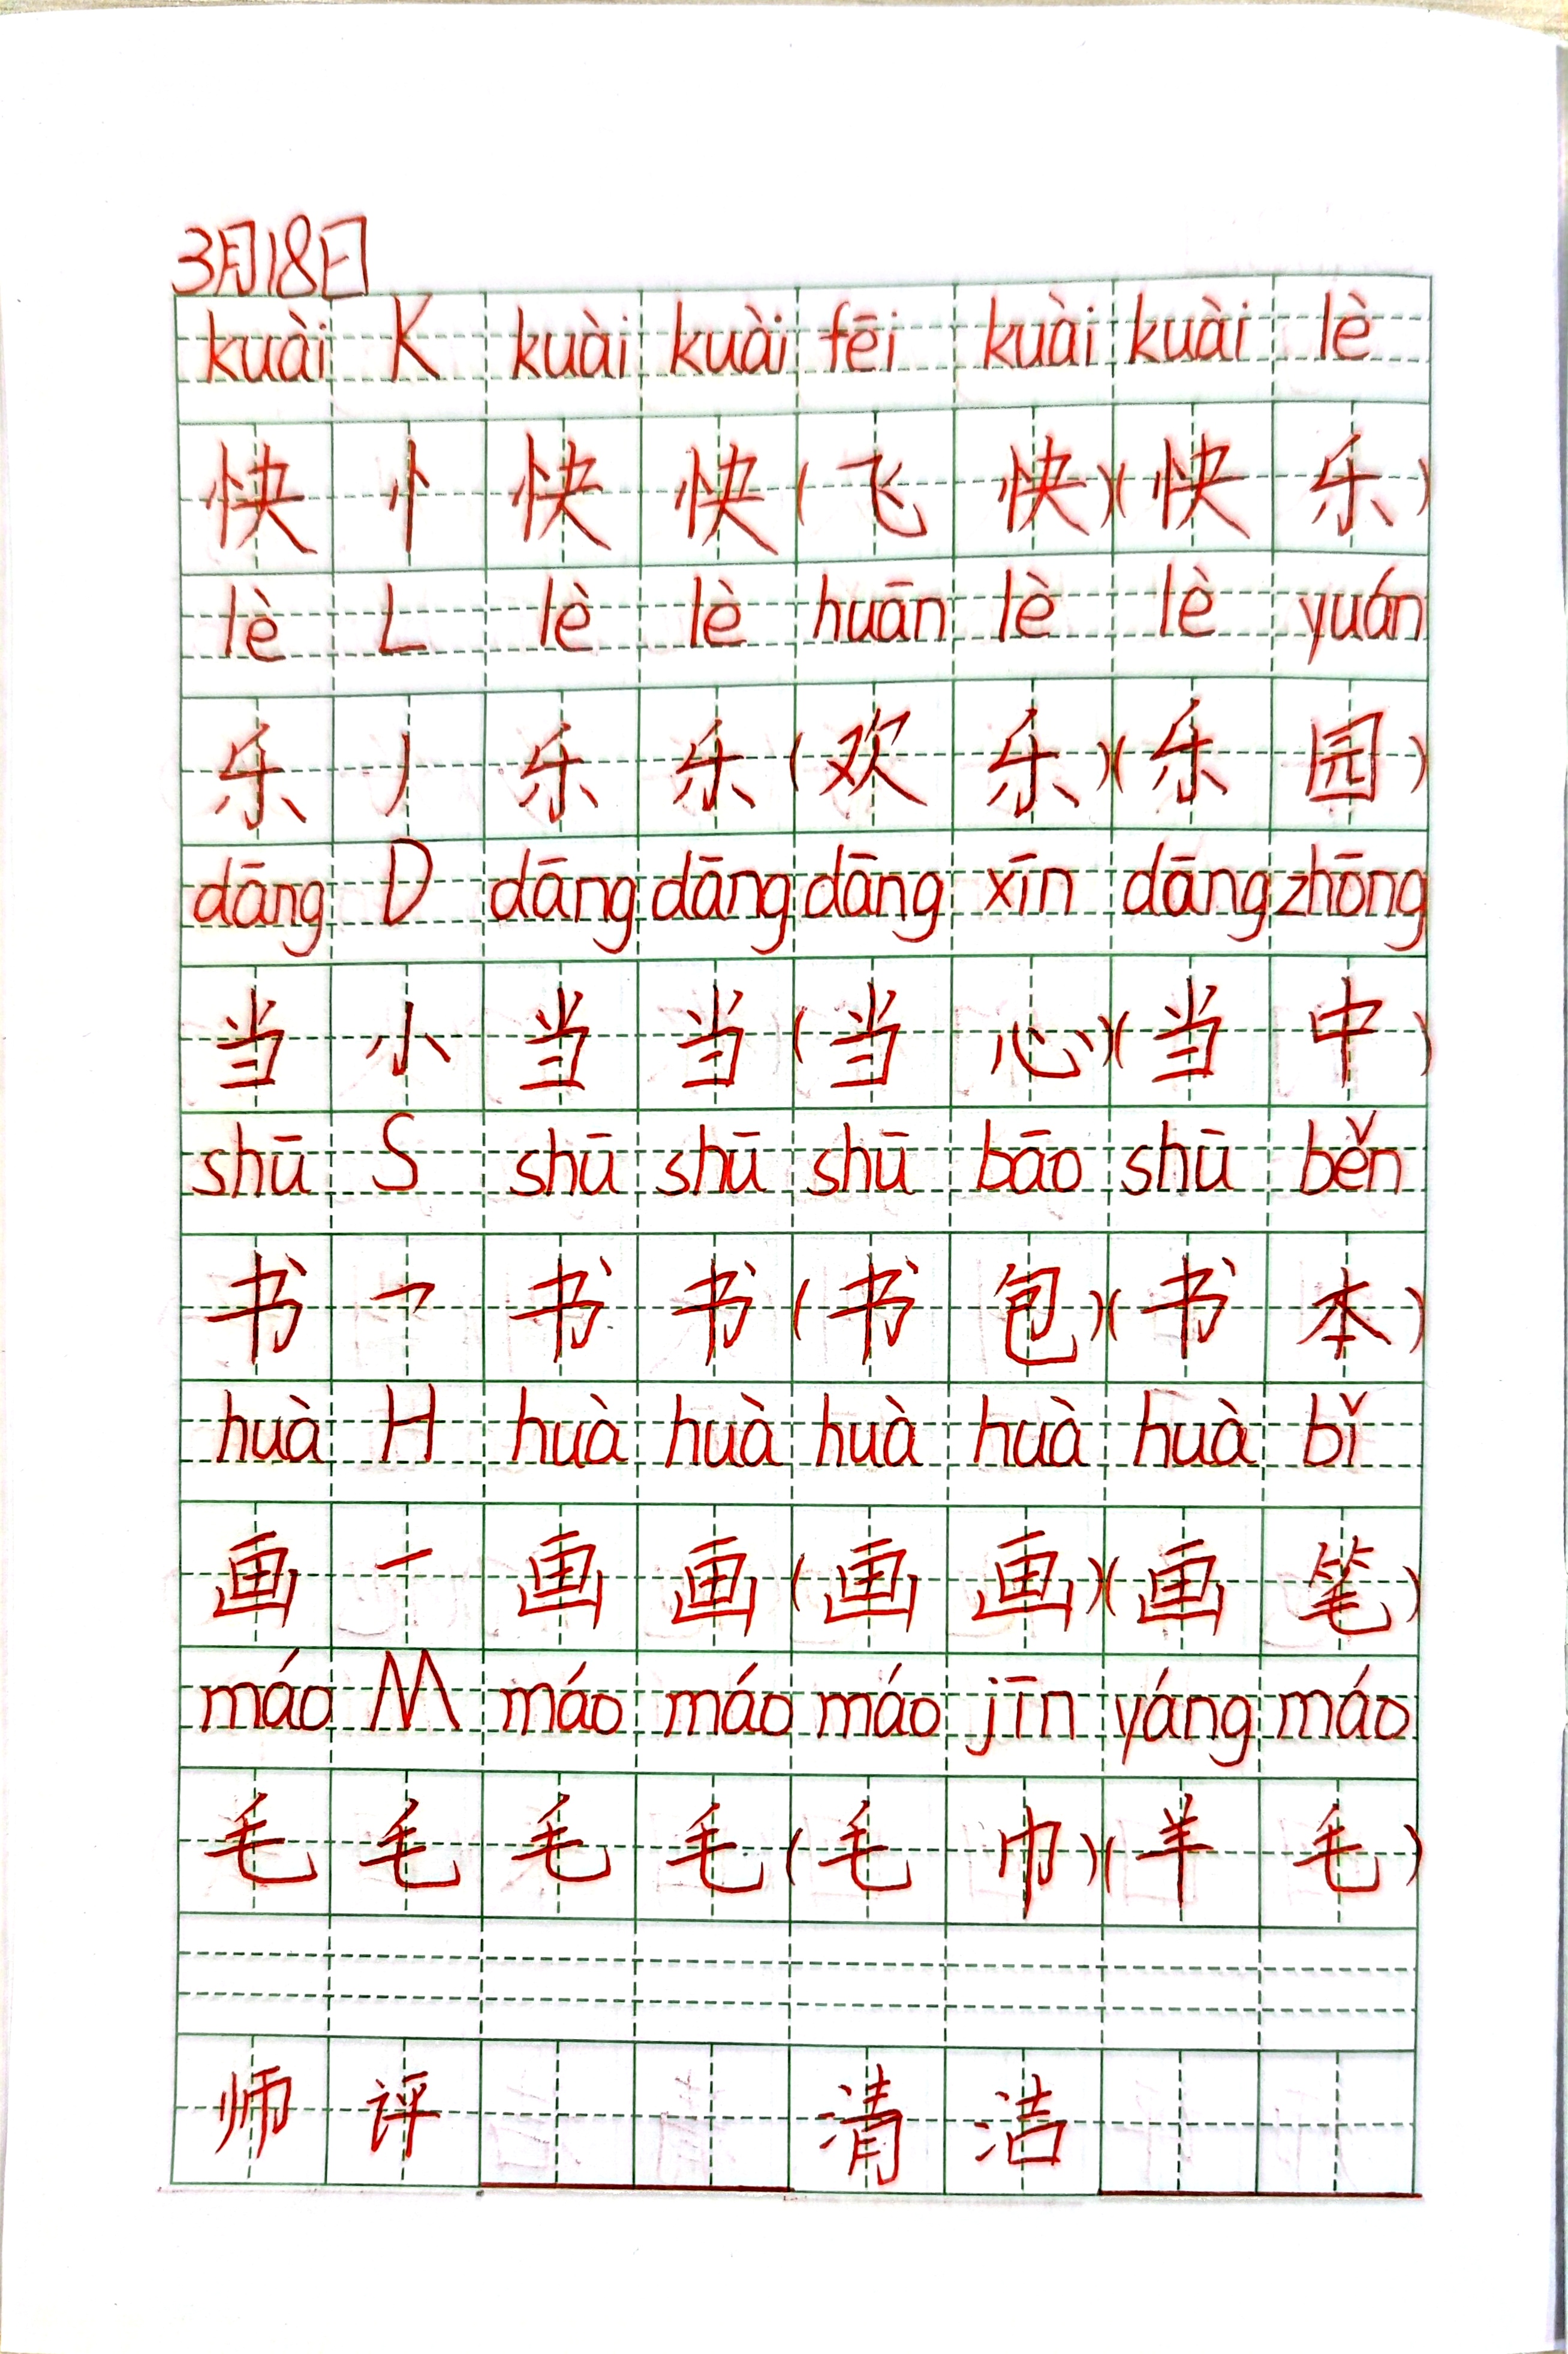 3月18日
kuài K kuài kuài fēi kuài kuài lè
快 忄 快 快 (飞 快)(快 乐)
lè L lè lè huān lè lè yuán
乐 丿 乐 乐 (欢 乐)(乐 园)
dāng D dāng dāng dāng xīn dāng zhōng
当 小 当 当 (当 心)(当 中)
shū S shū shū shū bāo shū běn
书 乛 书 书 (书 包)(书 本)
huà H huà huà huà huà huà bǐ
画 一 画 画 (画 画)(画 笔)
máo M máo máo máo jīn yáng máo
毛 毛 毛 毛 (毛 巾)(羊 毛)
师 评 清 洁